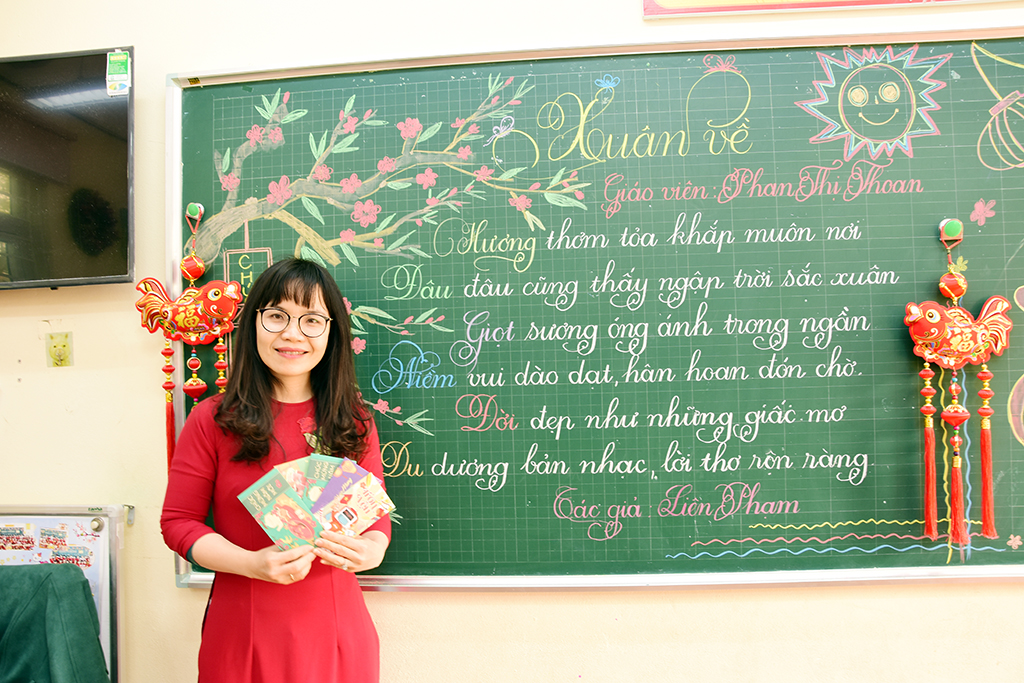 Xuân về
Giáo viên: Phan Thị Thoan
Hương thơm tỏa khắp muôn nơi
Đâu đâu cũng thấy ngập trời sắc xuân
Giọt sương óng ánh trong ngần
Niềm vui dào dạt, hân hoan đón chờ.
Đời đẹp như những giấc mơ
Du dương bản nhạc, lời thơ rộn ràng
Tác giả: Liên Phạm
福
福